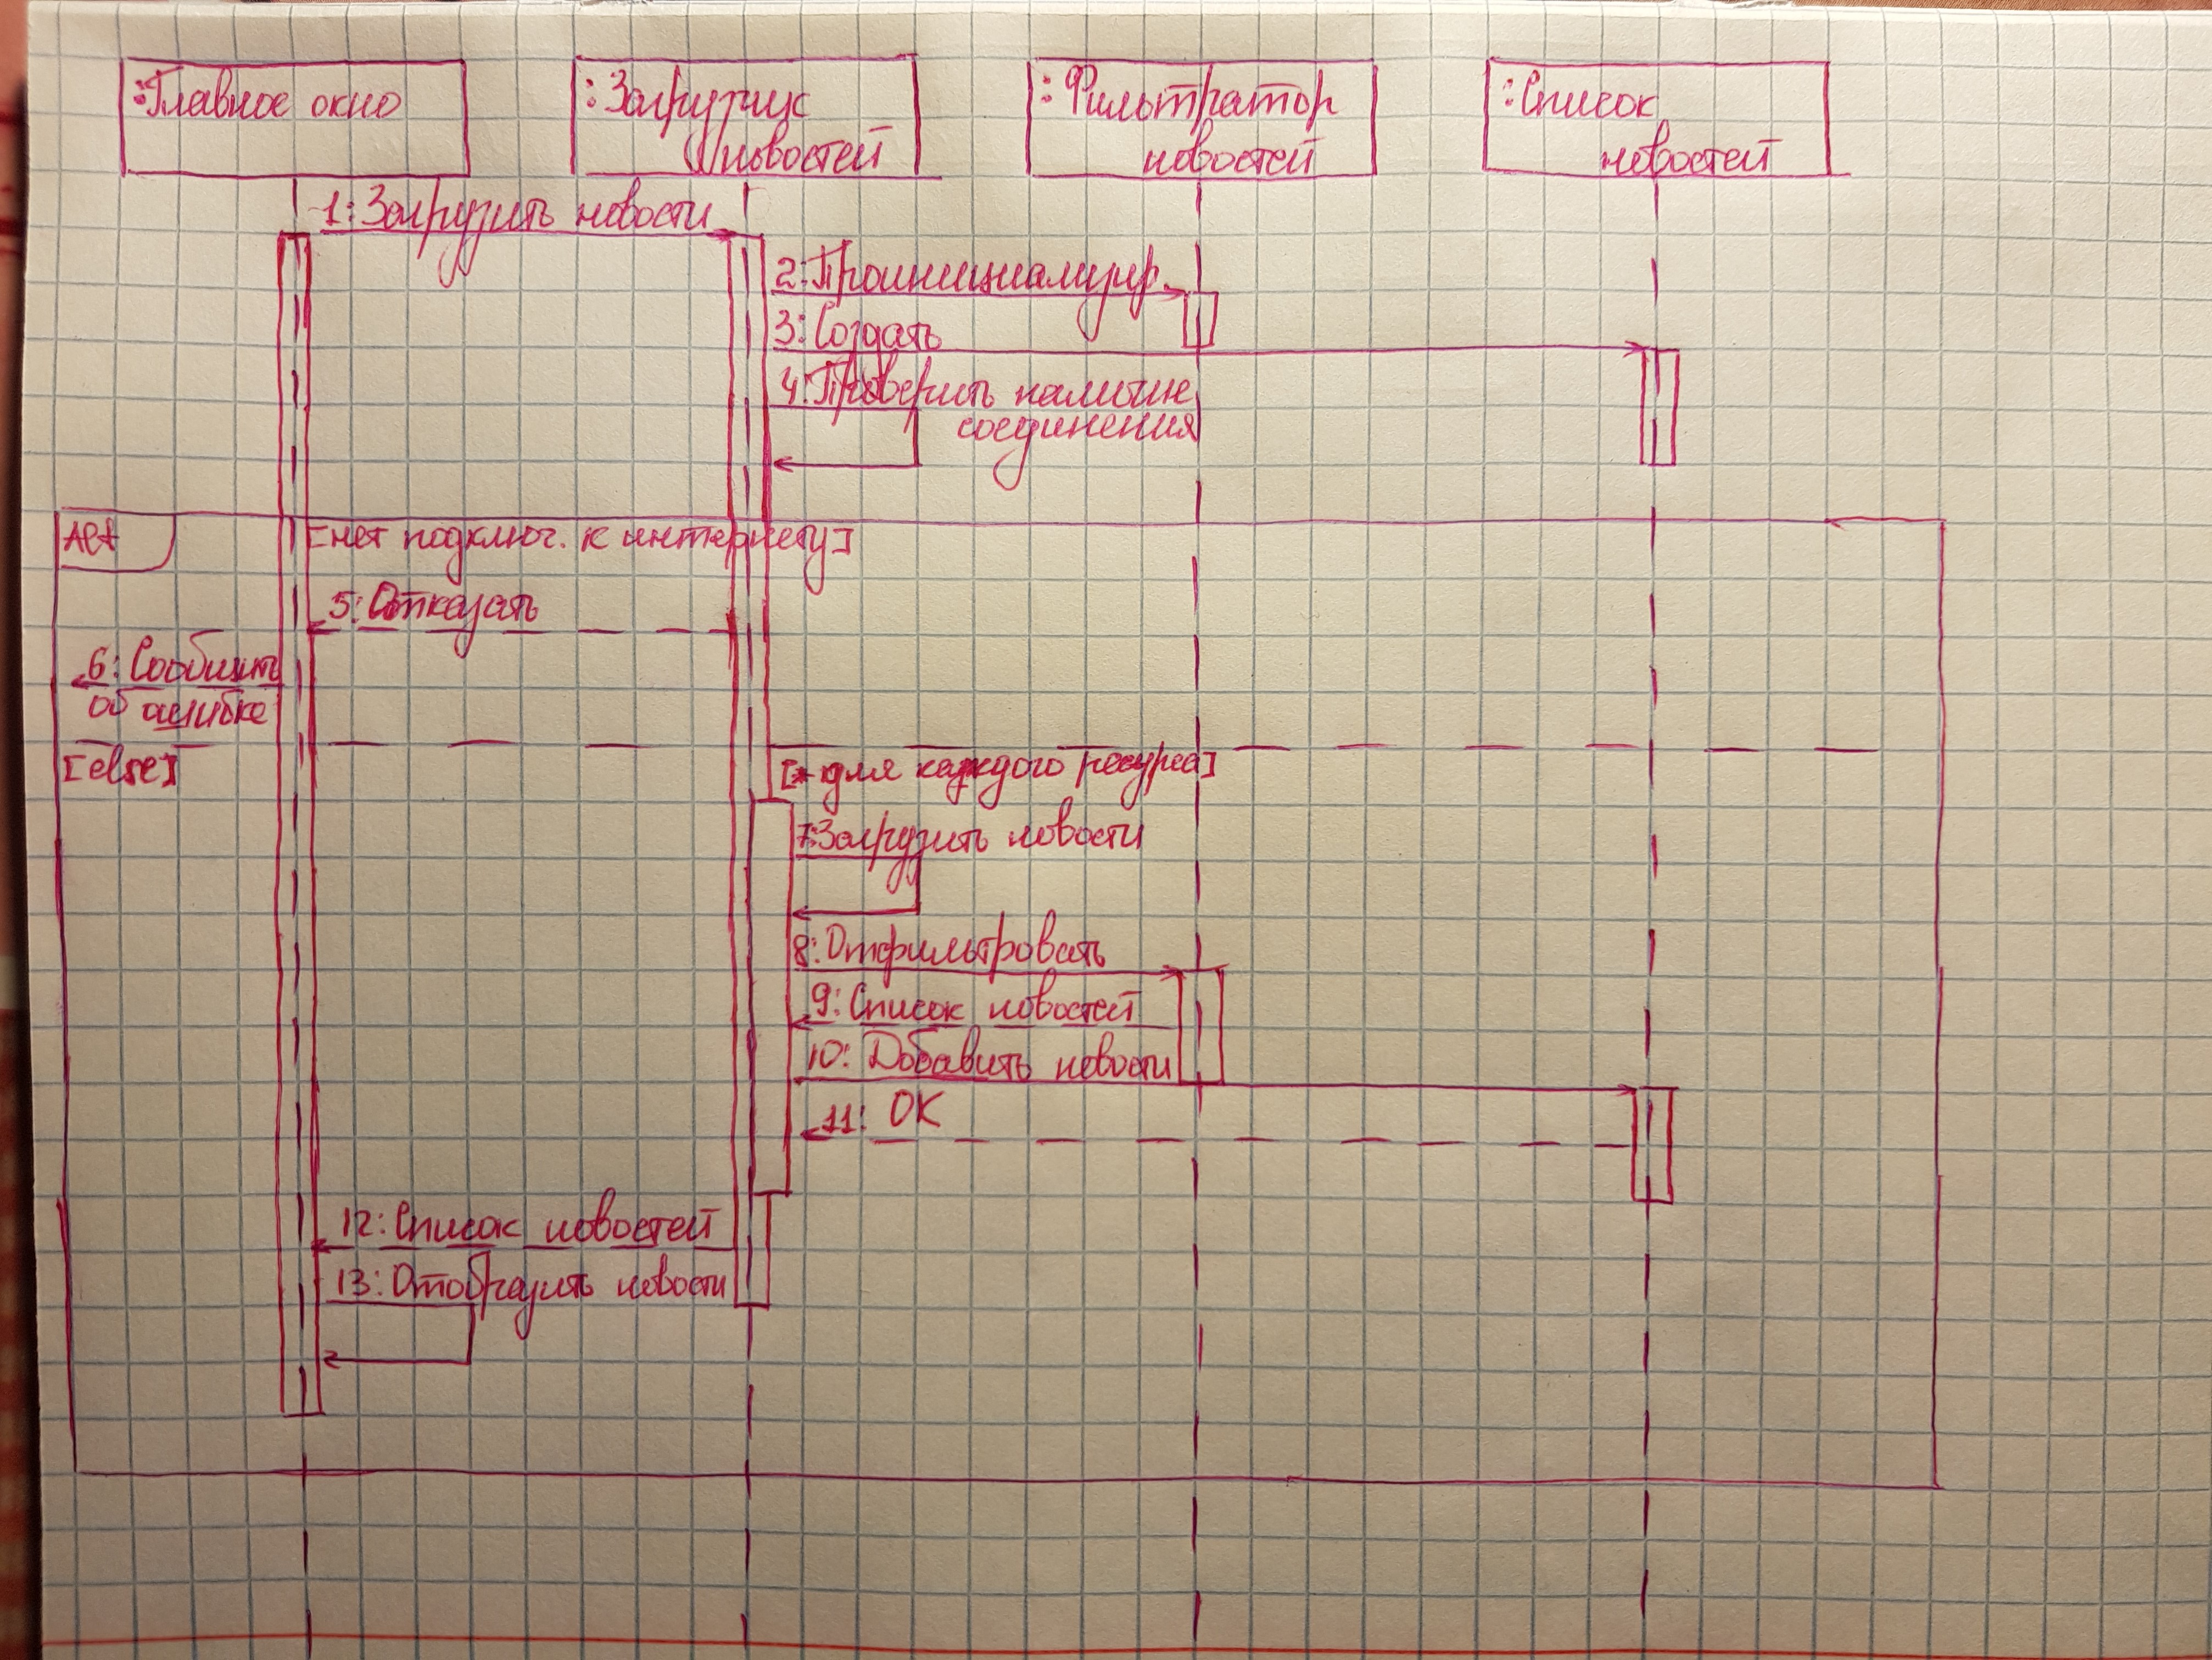 :Главное окно
:Загрузчик
новостей
:Фильтратор
новостей
:Список
новостей
1: Загрузить новости
2: Проинициализир.
3: Создать
4: Проверить наличие
соединения
Alt
[нет подключ. к интернету]
5: Отказать
6: Сообщить
об ошибке
[else]
[* для каждого ресурса]
7: Загрузить новости
8: Отфильтровать
9: Список новостей
10: Добавить новости
11: ОК
12: Список новостей
13: Отобразить новости